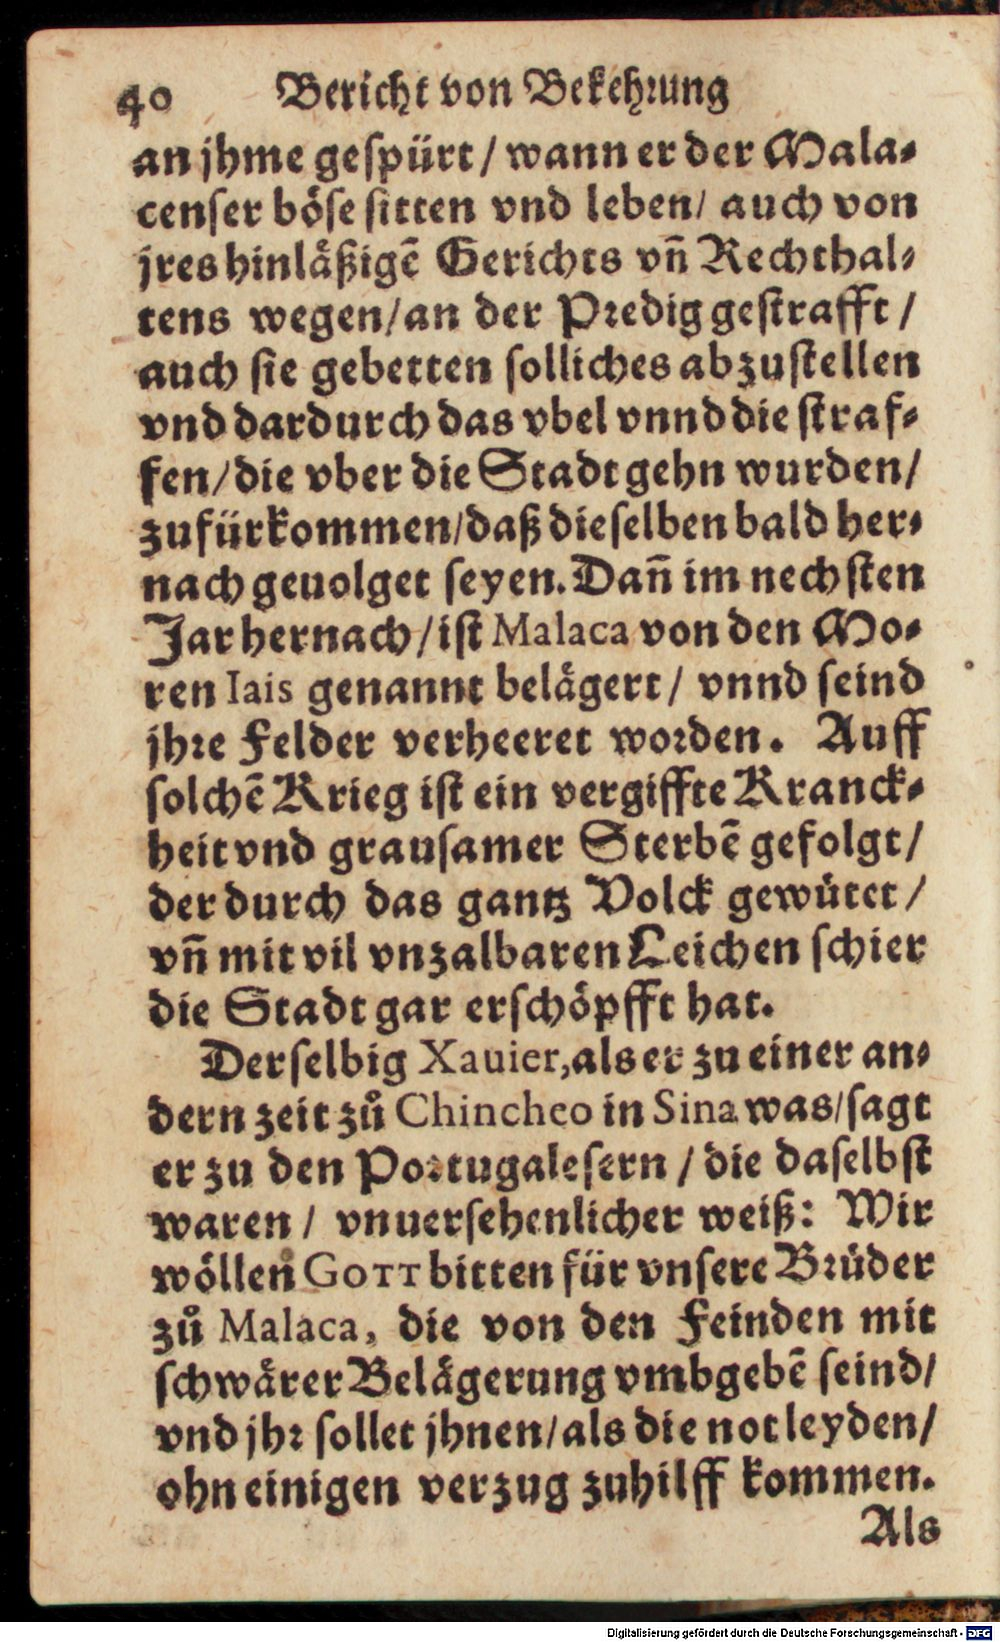 40 Bericht von Bekehrung
an jhme gespürt / wann er der Mala⸗
censer böse sitten vnd leben / auch von
jres hinläßigē Gerichts vn̄ Rechthal⸗
tens wegen / an der Predig gestrafft /
auch sie gebetten solliches abzustellen
vnd dardurch das vbel vnnd die straf⸗
fen / die vber die Stadt gehn wurden /
zufürkommen / daß dieselben bald her⸗
nach geuolget seyen. Dan̄ im nechsten
Jar hernach / ist Malaca von den Mo⸗
ren Iais genannt belägert / vnnd seind
jhre Felder verheeret worden. Auff
solchē Krieg ist ein vergiffte Kranck⸗
heit vnd grausamer Sterbē gefolgt /
der durch das gantz Volck gewütet /
vn̄ mit vil vnzalbaren Leichen schier
die Stadt gar erschöpfft hat.
Derselbig Xauier, als er zu einer an⸗
dern zeit zů Chincheo in Sina was / sagt
er zu den Portugalesern / die daselbst
waren / vnuersehenlicher weiß: Wir
wöllen GOTT bitten für vnsere Brüder
zů Malaca, die von den Feinden mit
schwärer Belägerung vmbgebē seind /
vnd jhr sollet jhnen / als die not leyden /
ohn einigen verzug zuhilff kommen.
Als
Digitalisierung gefördert durch die Deutsche Forschungsgemeinschaft - DFG